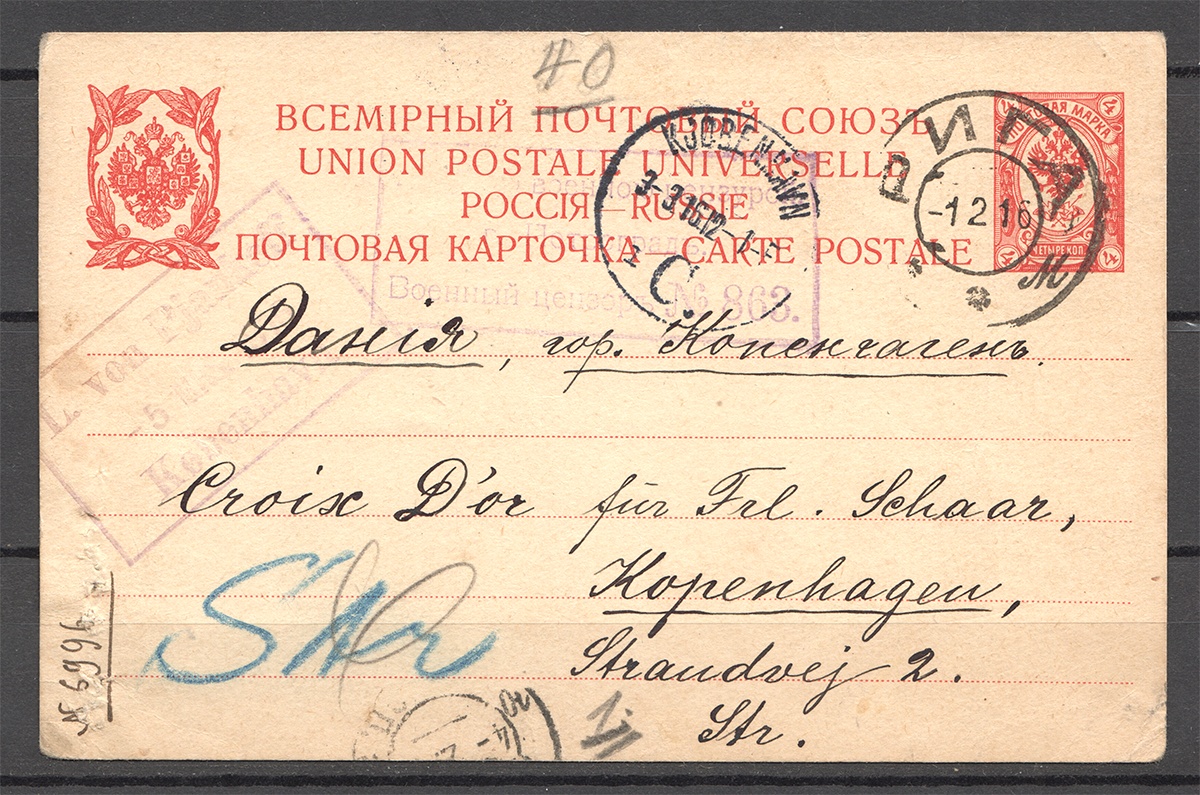 40
ВСЕМІРНЫЙ ПОЧТОВЫЙ СОЮЗЪ
UNION POSTALE UNIVERSELLE
РОССІЯ—RUSSIE
ПОЧТОВАЯ КАРТОЧКА—CARTE POSTALE
ПОЧТОВАЯ МАРКА
4
4
ЧЕТЫРЕ КОП.
4
4
РИГА
-1 2 16
KJØBENHAVN
3-3 16 12-1
C.
Военный цензоръ № 863.
L. von
-5
Данія, гор. Копенгагенъ.
Croix D'or für Frl. Schaar,
Kopenhagen,
Strandvej 2.
Str.
№ 6996